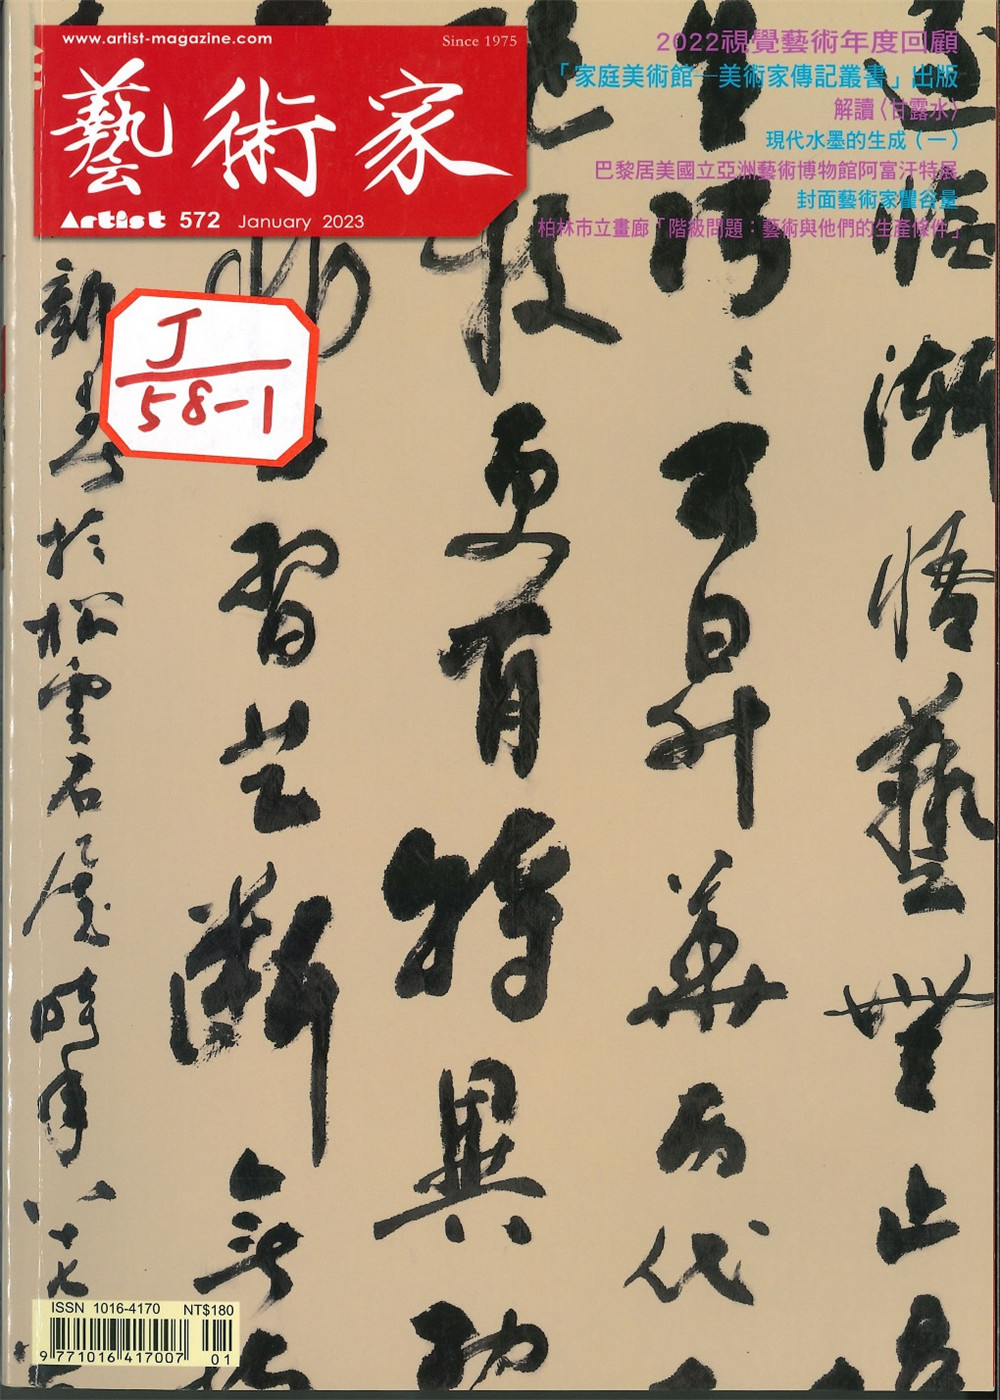 www.artist-magazine.com
Since 1975
藝術家
Artist 572 January 2023
2022視覺藝術年度回顧
「家庭美術館—美術家傳記叢書」出版
解讀〈甘露水〉
現代水墨的生成（一）
巴黎居美國立亞洲藝術博物館阿富汗特展
封面藝術家瞿谷量
柏林市立畫廊「階級問題：藝術與他們的生產條件」
J
58-1
漸悟藝無止
河
可昇華兩代
技更有特異功
習藝斷無
於松雲石屋時年八十七
ISSN 1016-4170 NT$180
9 771016 417007 01